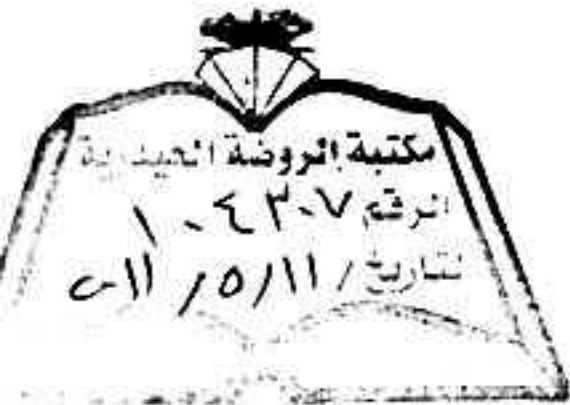 مكتبة الروضة الحيدرية
الرقم ١٠٤٣٠٧
التاريخ / ١١ / ٥ /